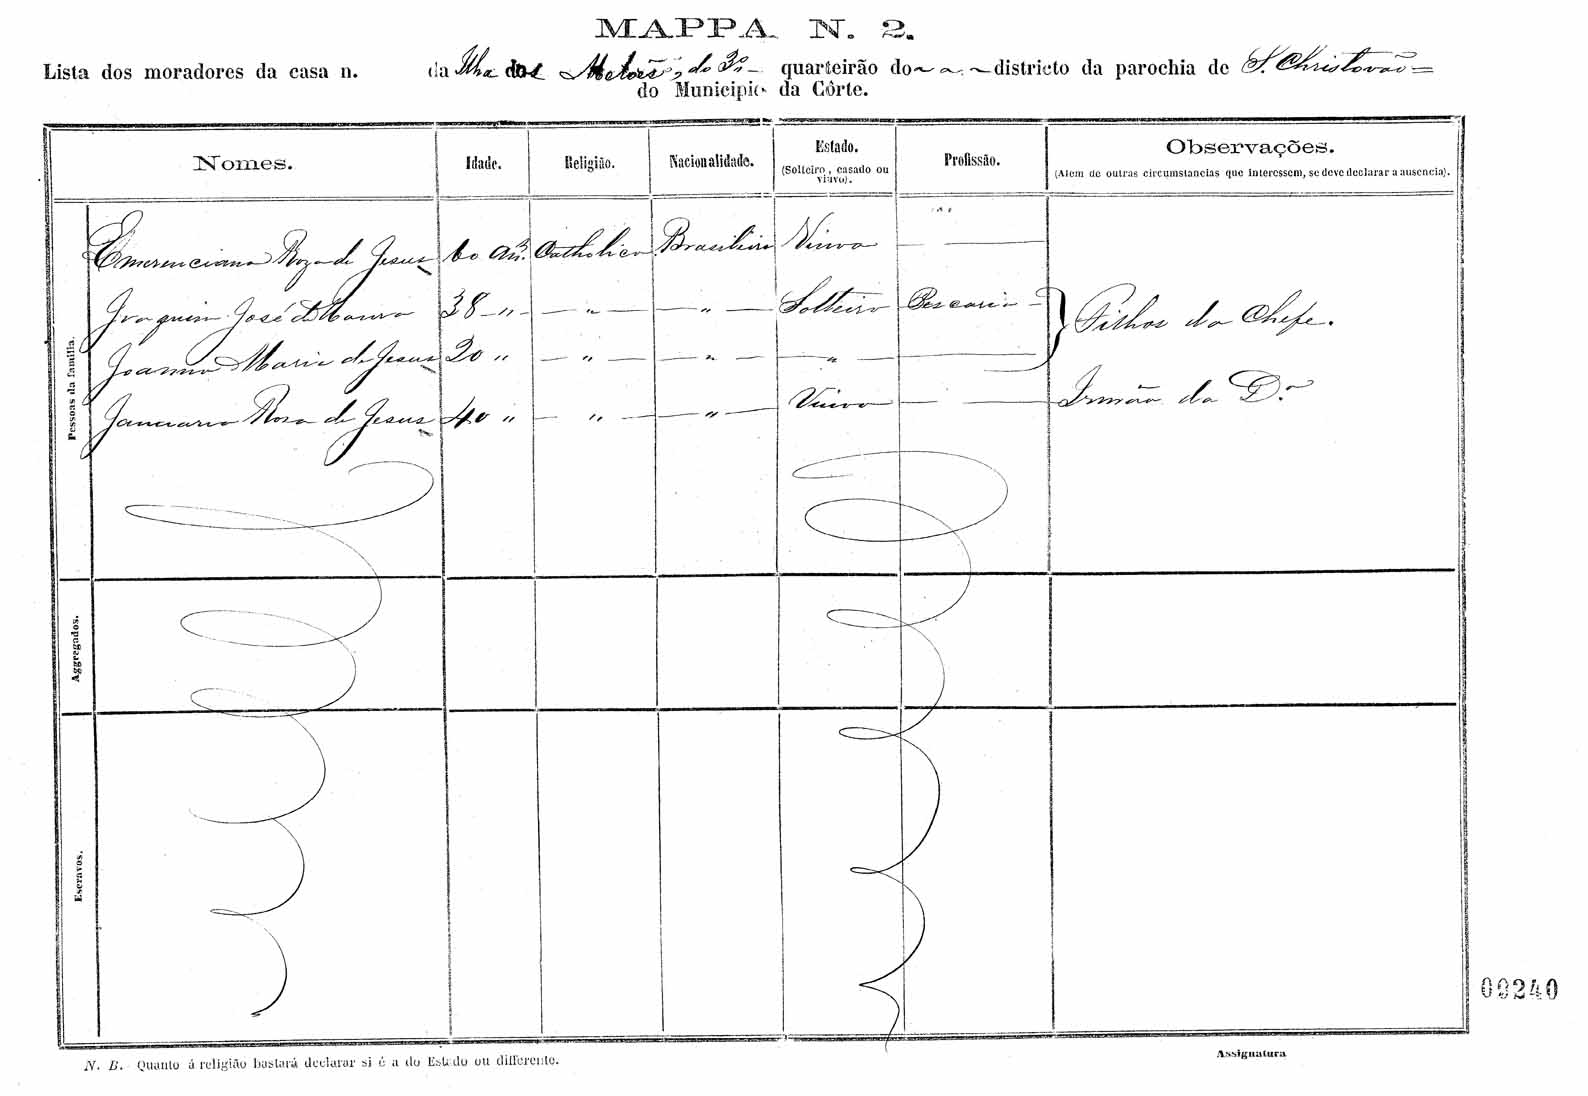 MAPPA N. 2.
Lista dos moradores da casa n. da Ilha dos Melões, do 3º quarteirão do districto da parochia de S. Christovão
do Municipio da Côrte.
Nomes. Idade. Religião. Nacionalidade. Estado. (Solteiro, casado ou viuvo). Profissão. Observações. (Alem de outras circumstancias que interessem, se deve declarar a ausencia).
Pessoas da familia.
Emerenciana Roza de Jesus 60 an.s Catholica Brasileira Viuva — —
Joaquim José de Moura 38 " — " — — " — Solteiro Pescaria — Filhos da Chefe.
Joanna Maria de Jesus 20 " — " — — " — — " —
Januaria Rosa de Jesus 40 " — " — — " — Viuva — — Irmão da D.ª
Aggregados.
Escravos.
00240
N. B. Quanto á religião bastará declarar si é a do Estado ou differente.
Assignatura